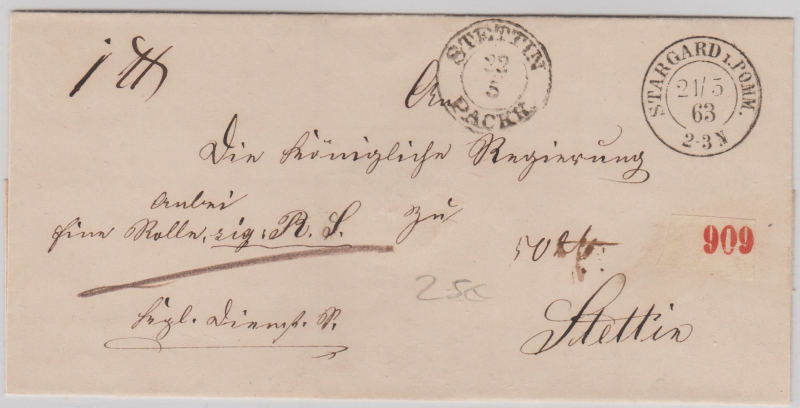 STETTIN
22
5
PACKK.
STARGARD I. POMM.
21/5
63
2-3 N
An
Die Königliche Regierung
anbei
Eine Rolle, sig: R. S. zu
909
50
Stettin
Kngl. Dienst. S.